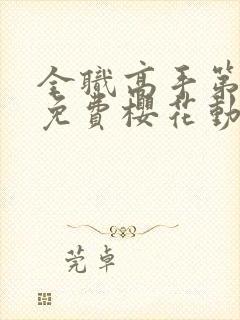 全職高手第
免費櫻花動
莞卓